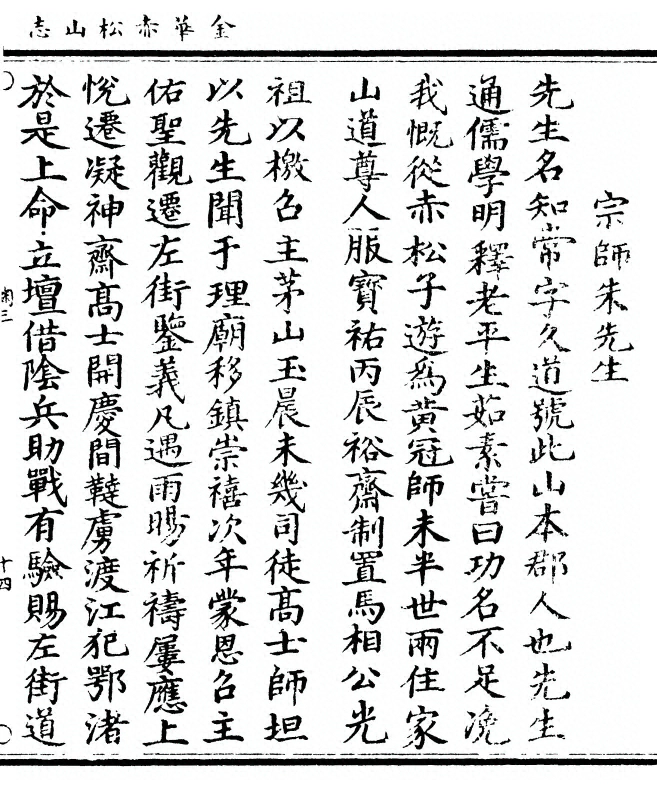 金華赤松山志
宗師朱先生
先生名知常字久道號此山本郡人也先生
通儒學明釋老平生茹素嘗曰功名不足浼
我慨從赤松子遊為黃冠師未半世兩住家
山道尊人服寶祐丙辰裕齋制置馬相公光
祖以檄召主茅山玉晨未幾司徒高士師坦
以先生聞于理廟移鎮崇禧次年蒙恩召主
佑聖觀遷左街鑒義凡遇雨暘祈禱屢應上
悅遷凝神齋高士開慶間韃虜渡江犯鄂渚
於是上命立壇借陰兵助戰有驗賜左街道
十四